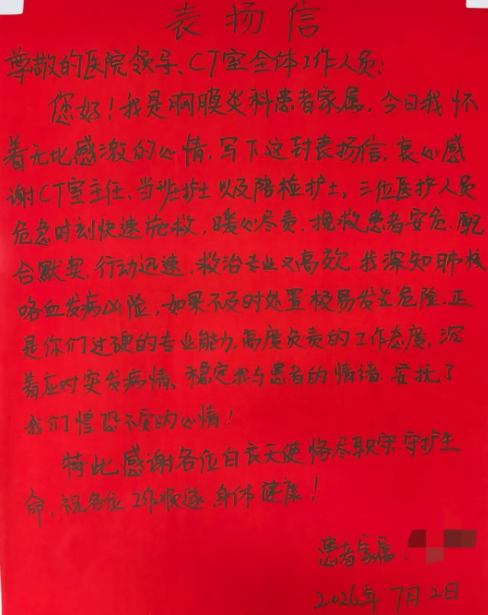 表扬信
尊敬的医院领导、CT室全体工作人员：
您好！我是胸膜炎科患者家属，今日我怀
着无比感激的心情，写下这封表扬信，衷心感
谢CT室主任、当班护士以及陪检护士，三位医护人员
危急时刻快速施救，暖心尽责，挽救患者安危，配
合默契，行动迅速，救治专业又高效，我深知肺核
咯血发病凶险，如果不及时处置极易发生危险，正
是你们过硬的专业能力，高度负责的工作态度，沉
着应对突发病情、稳定我与患者的情绪，安抚了
我们惶恐不安的心情！
特此感谢各位白衣天使恪尽职守守护生
命，祝各位工作顺遂，身体健康！
患者家属
2026年7月2日